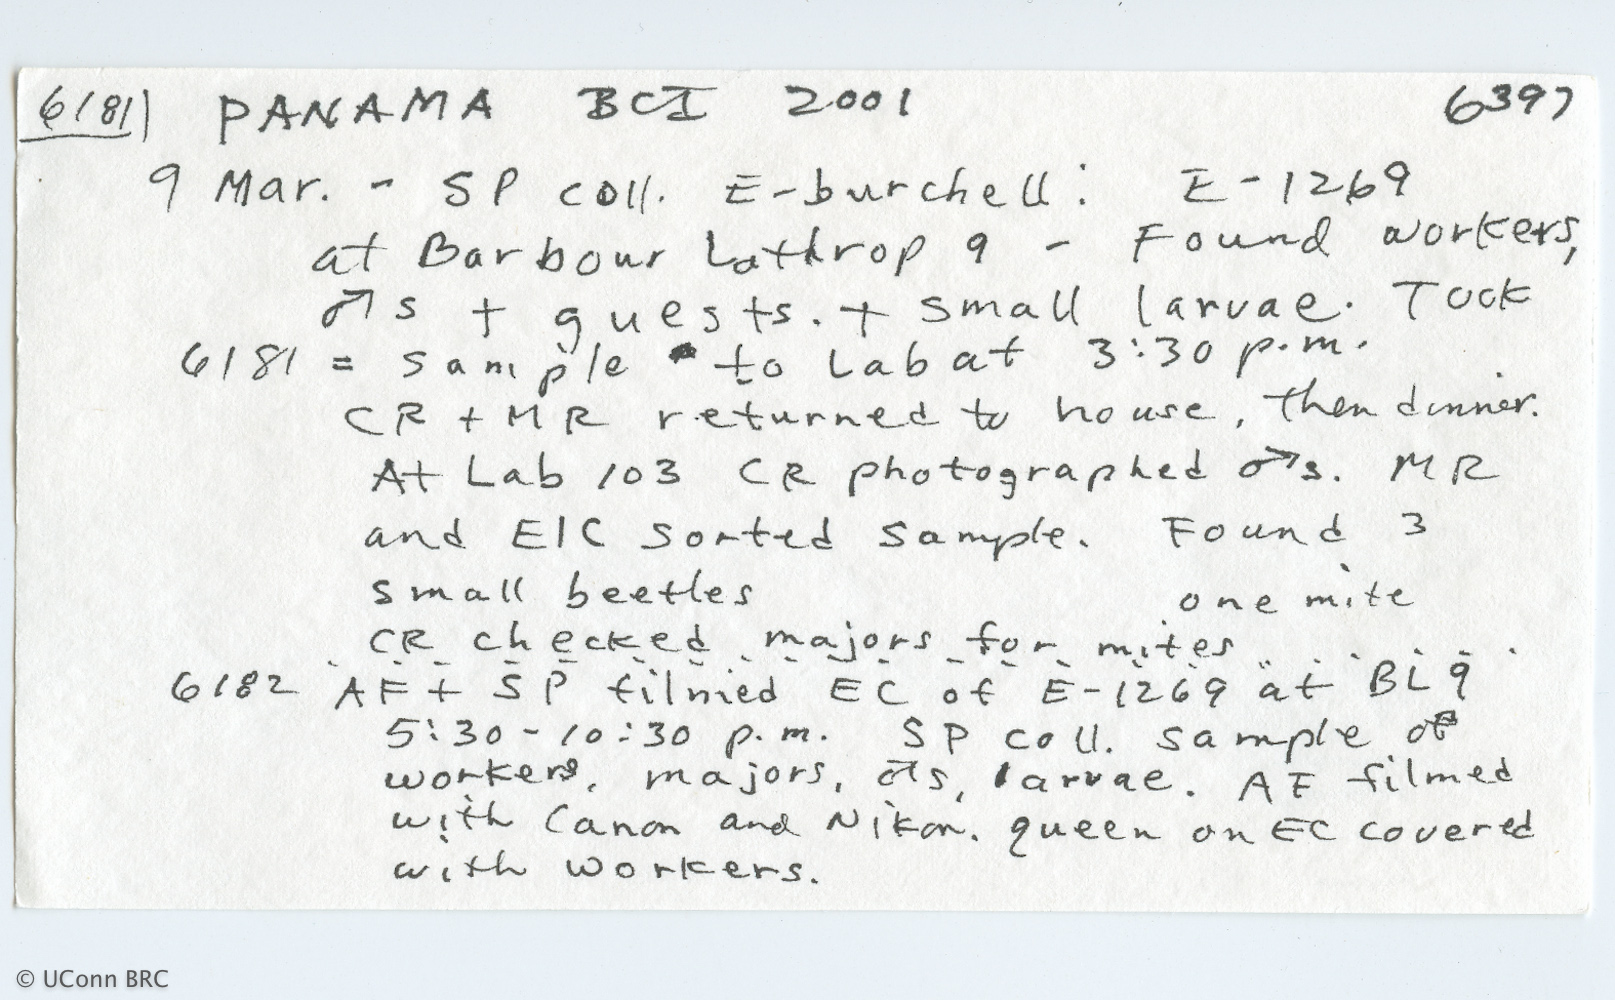 6181) PANAMA BCI 2001 6397
9 Mar. - SP coll. E-burchelli: E-1269
at Barbour Lathrop 9 - Found workers,
♂s + guests. + small larvae. Took
6181 = sample to Lab at 3:30 p.m.
CR + MR returned to house, then dinner.
At Lab 103 CR photographed ♂s. MR
and EIC sorted sample. Found 3
small beetles one mite
CR checked majors for mites
6182 AF + SP filmed EC of E-1269 at BL 9
5:30-10:30 p.m. SP coll. sample of
workers, majors, ♂s, larvae. AF filmed
with Canon and Nikon. queen on EC covered
with workers.
© UConn BRC